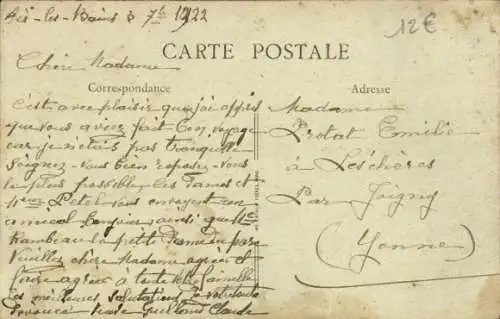 Aix-les-Bains 3 7bre 1922
12€
CARTE POSTALE
Chère Madame
Correspondance
Adresse
C'est avec plaisir que j'ai appris
que vous aviez fait bon voyage
car je n'étais pas tranquille
Soignez-vous bien reposez-vous
le plus possible les Dames et
vous envoyent un
amical bonjour ainsi que
Rambeau la petite Dame du parc
Veuillez chère Madame agréer et
faire agréer à toute la famille
les meilleures salutations de votre toute
Claude
Madame
Protat Emilie
à Leschères
Par Joigny
(Yonne)